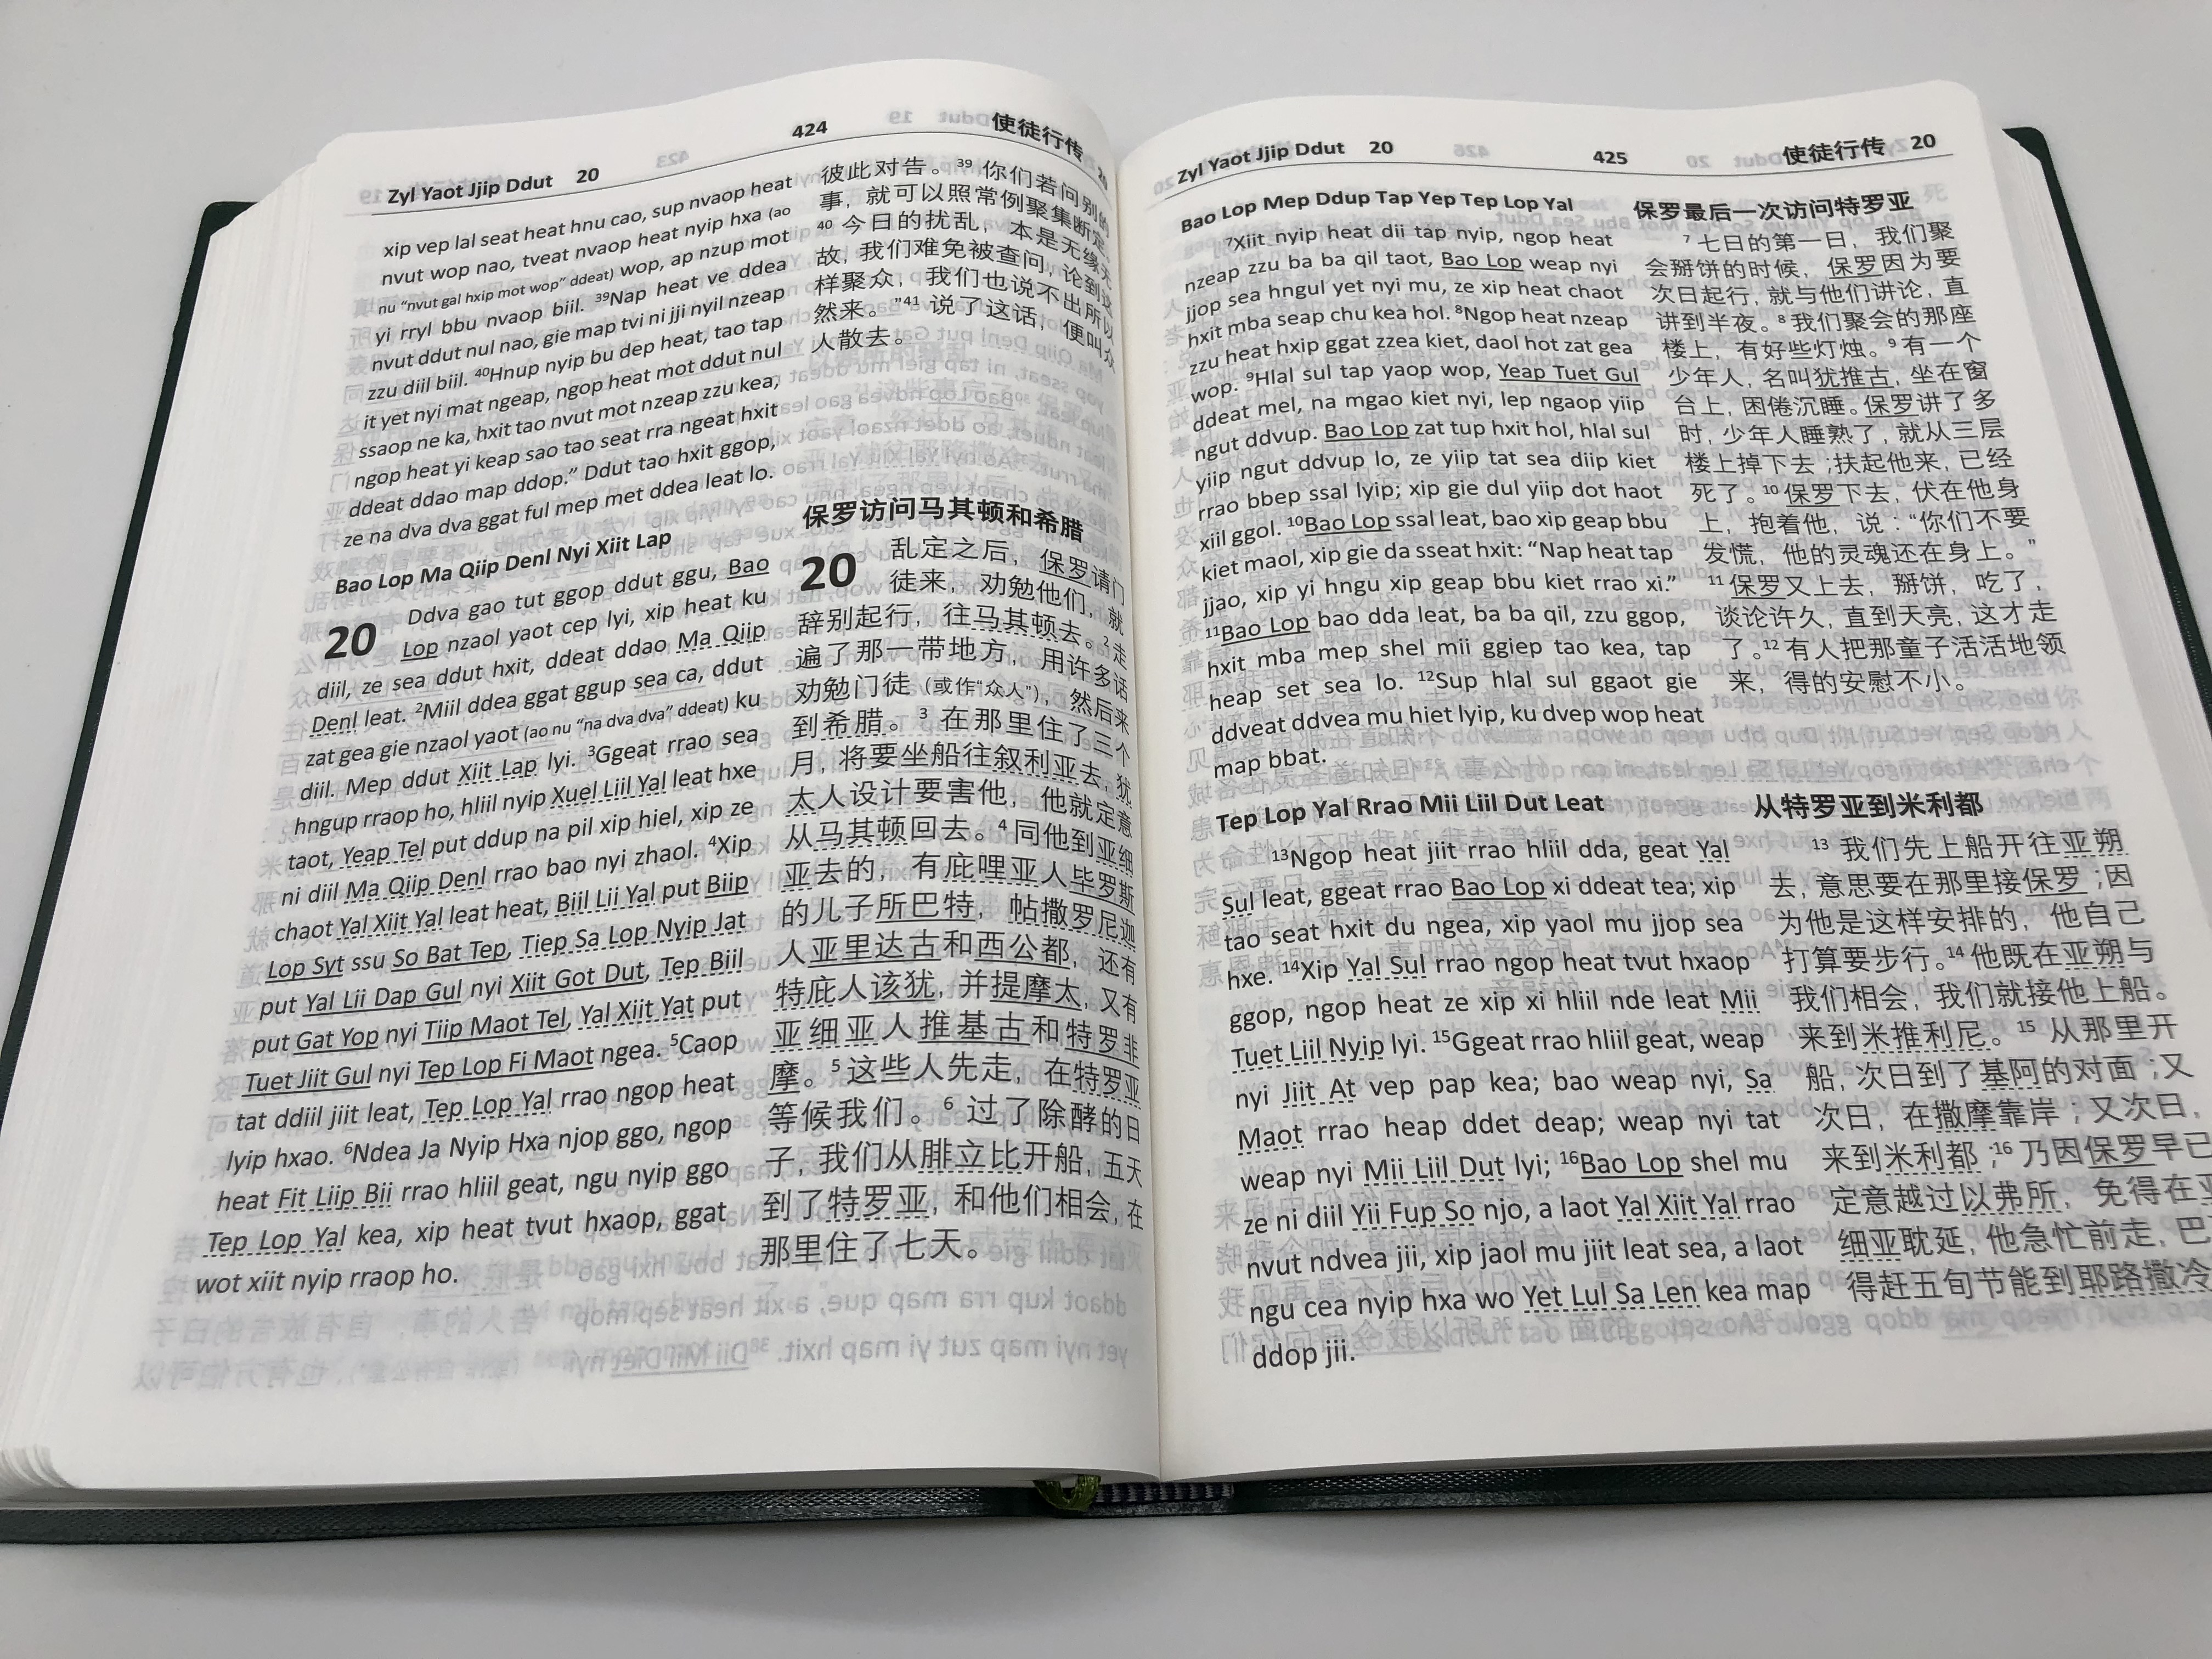 Zyl Yaot Jjip Ddut 20
424
使徒行传
xip vep lal seat heat hnu cao, sup nvaop heat
nvut wop nao, tveat nvaop heat nyip hxa (ao
nu “nvut gal hxip mot wop” ddeat) wop, ap nzup mot
yi rryl bbu nvaop biil. ³⁹Nap heat ve ddea
nvut ddut nul nao, gie map tvi ni jji nyil nzeap
zzu diil biil. ⁴⁰Hnup nyip bu dep heat, tao tap
it yet nyi mat ngeap, ngop heat mot ddut nul
ssaop ne ka, hxit tao nvut mot nzeap zzu kea,
ngop heat yi keap sao tao seat rra ngeat hxit
ddeat ddao map ddop.” Ddut tao hxit ggop,
ze na dva dva ggat ful mep met ddea leat lo.
Bao Lop Ma Qiip Denl Nyi Xiit Lap
20 Ddva gao tut ggop ddut ggu, Bao
Lop nzaol yaot cep lyi, xip heat ku
diil, ze sea ddut hxit, ddeat ddao Ma Qiip
Denl leat. ²Miil ddea ggat ggup sea ca, ddut
zat gea gie nzaol yaot (ao nu “na dva dva” ddeat) ku
diil. Mep ddut Xiit Lap lyi. ³Ggeat rrao sea
hngup rraop ho, hliil nyip Xuel Liil Yal leat hxe
taot, Yeap Tel put ddup na pil xip hiel, xip ze
ni diil Ma Qiip Denl rrao bao nyi zhaol. ⁴Xip
chaot Yal Xiit Yal leat heat, Biil Lii Yal put Biip
Lop Syt ssu So Bat Tep, Tiep Sa Lop Nyip Jat
put Yal Lii Dap Gul nyi Xiit Got Dut, Tep Biil
put Gat Yop nyi Tiip Maot Tel, Yal Xiit Yat put
Tuet Jiit Gul nyi Tep Lop Fi Maot ngea. ⁵Caop
tat ddiil jiit leat, Tep Lop Yal rrao ngop heat
lyip hxao. ⁶Ndea Ja Nyip Hxa njop ggo, ngop
heat Fit Liip Bii rrao hliil geat, ngu nyip ggo
Tep Lop Yal kea, xip heat tvut hxaop, ggat
wot xiit nyip rraop ho.
彼此对告。³⁹你们若问别的
事，就可以照常例聚集断定。
⁴⁰今日的扰乱，本是无缘无
故，我们难免被查问，论到这
样聚众，我们也说不出所以
然来。”⁴¹说了这话，便叫众
人散去。
保罗访问马其顿和希腊
20 乱定之后，保罗请门
徒来，劝勉他们，就
辞别起行，往马其顿去。²走
遍了那一带地方，用许多话
劝勉门徒（或作“众人”），然后来
到希腊。³在那里住了三个
月，将要坐船往叙利亚去，犹
太人设计要害他，他就定意
从马其顿回去。⁴同他到亚细
亚去的，有庇哩亚人毕罗斯
的儿子所巴特，帖撒罗尼迦
人亚里达古和西公都，还有
特庇人该犹，并提摩太，又有
亚细亚人推基古和特罗非
摩。⁵这些人先走，在特罗亚
等候我们。⁶过了除酵的日
子，我们从腓立比开船，五天
到了特罗亚，和他们相会，在
那里住了七天。
Zyl Yaot Jjip Ddut 20
425
使徒行传 20
Bao Lop Mep Ddup Tap Yep Tep Lop Yal
⁷Xiit nyip heat dii tap nyip, ngop heat
nzeap zzu ba ba qil taot, Bao Lop weap nyi
jjop sea hngul yet nyi mu, ze xip heat chaot
hxit mba seap chu kea hol. ⁸Ngop heat nzeap
zzu heat hxip ggat zzea kiet, daol hot zat gea
wop. ⁹Hlal sul tap yaop wop, Yeap Tuet Gul
ddeat mel, na mgao kiet nyi, lep ngaop yiip
ngut ddvup. Bao Lop zat tup hxit hol, hlal sul
yiip ngut ddvup lo, ze yiip tat sea diip kiet
rrao bbep ssal lyip; xip gie dul yiip dot haot
xiil ggol. ¹⁰Bao Lop ssal leat, bao xip geap bbu
kiet maol, xip gie da sseat hxit: “Nap heat tap
jjao, xip yi hngu xip geap bbu kiet rrao xi.”
¹¹Bao Lop bao dda leat, ba ba qil, zzu ggop,
hxit mba mep shel mii ggiep tao kea, tap
heap set sea lo. ¹²Sup hlal sul ggaot gie
ddveat ddvea mu hiet lyip, ku dvep wop heat
map bbat.
Tep Lop Yal Rrao Mii Liil Dut Leat
¹³Ngop heat jiit rrao hliil dda, geat Yal
Sul leat, ggeat rrao Bao Lop xi ddeat tea; xip
tao seat hxit du ngea, xip yaol mu jjop sea
hxe. ¹⁴Xip Yal Sul rrao ngop heat tvut hxaop
ggop, ngop heat ze xip xi hliil nde leat Mii
Tuet Liil Nyip lyi. ¹⁵Ggeat rrao hliil geat, weap
nyi Jiit At vep pap kea; bao weap nyi, Sa
Maot rrao heap ddet deap; weap nyi tat
weap nyi Mii Liil Dut lyi; ¹⁶Bao Lop shel mu
ze ni diil Yii Fup So njo, a laot Yal Xiit Yal rrao
nvut ndvea jii, xip jaol mu jiit leat sea, a laot
ngu cea nyip hxa wo Yet Lul Sa Len kea map
ddop jii.
保罗最后一次访问特罗亚
⁷七日的第一日，我们聚
会掰饼的时候，保罗因为要
次日起行，就与他们讲论，直
讲到半夜。⁸我们聚会的那座
楼上，有好些灯烛。⁹有一个
少年人，名叫犹推古，坐在窗
台上，困倦沉睡。保罗讲了多
时，少年人睡熟了，就从三层
楼上掉下去；扶起他来，已经
死了。¹⁰保罗下去，伏在他身
上，抱着他，说：“你们不要
发慌，他的灵魂还在身上。”
¹¹保罗又上去，掰饼，吃了，
谈论许久，直到天亮，这才走
了。¹²有人把那童子活活地领
来，得的安慰不小。
从特罗亚到米利都
¹³我们先上船开往亚朔
去，意思要在那里接保罗；因
为他是这样安排的，他自己
打算要步行。¹⁴他既在亚朔与
我们相会，我们就接他上船。
来到米推利尼。¹⁵从那里开
船，次日到了基阿的对面；又
次日，在撒摩靠岸；又次日，
来到米利都；¹⁶乃因保罗早已
定意越过以弗所，免得在亚
细亚耽延，他急忙前走，巴
得赶五旬节能到耶路撒冷